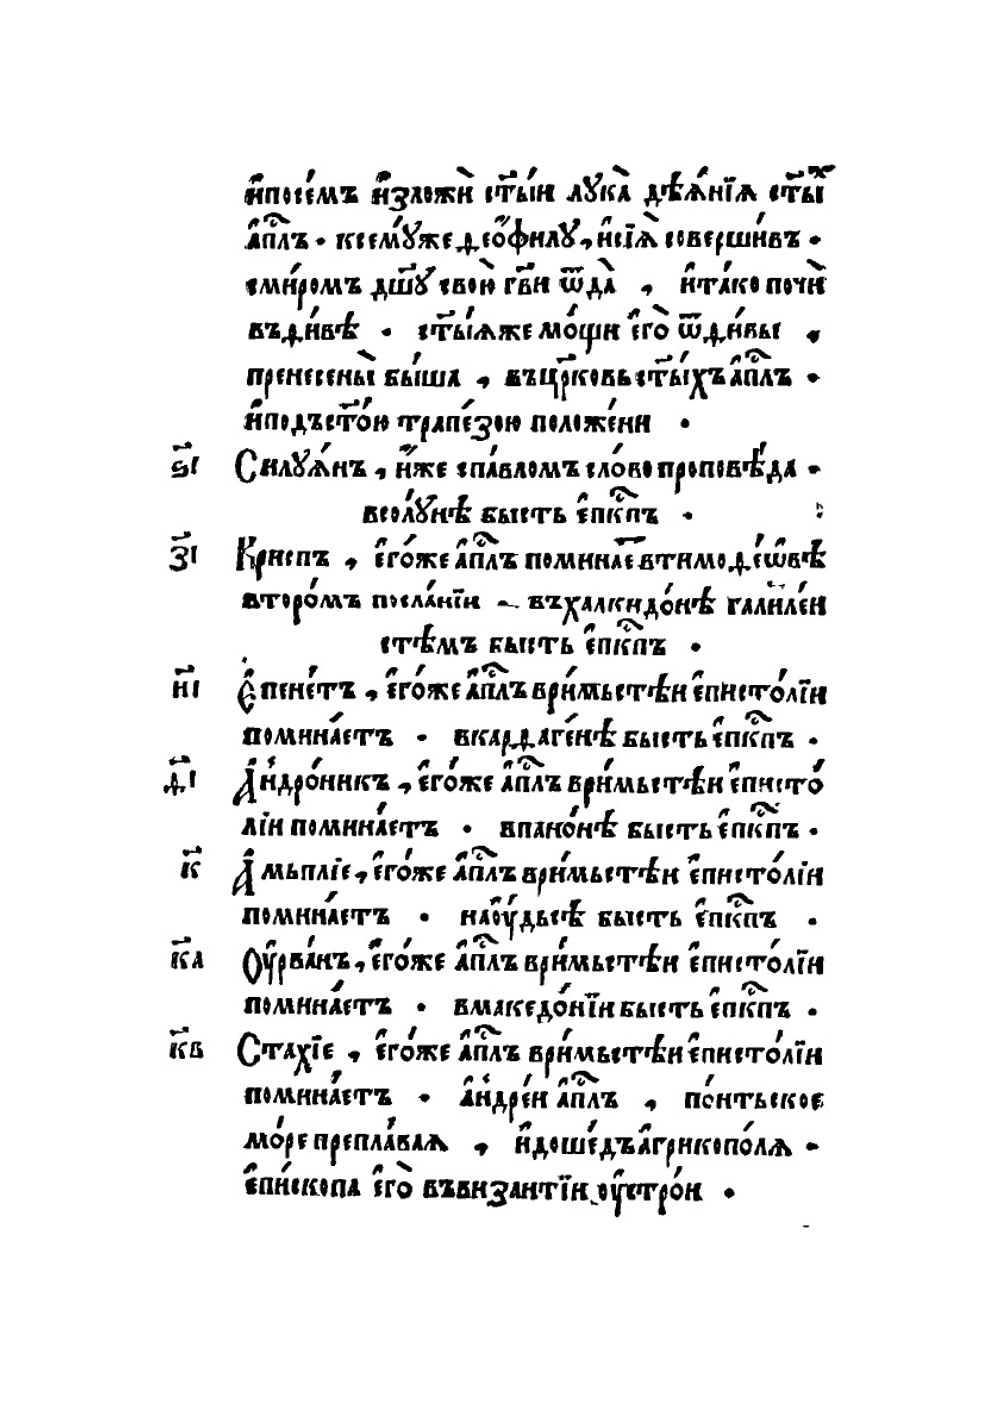 и҆посе́мъ и҆зложѝ ст҃ы́и лꙋка̀ дѣѧ́нїѧ ст҃ы́ⷯ
а҆пⷭ҇лъ · ксемꙋ́же ѳео́филꙋ , и҆сїѧ̀ соверши́въ ·
сми́ромъ дш҃ꙋ свою̀ гв҃и ѿда̀ , и҆та́ко почѝ
въѳи́вѣ · ст҃ы́ѧже мо́щи є҆го̀ ѿѳи́вы ,
пренесены̀ бы́ша , въцр҃ковь ст҃ы́хъ а҆пⷭ҇лъ ·
и҆подъст҃о́ю трапе́зою положе́ни ·
ѕ҃і Силꙋѧ́нъ , и҆́же спа́вломъ сло́во проповѣ́да ·
всолꙋ́нѣ бысть є҆пⷭ҇кпъ ·
з҃і Криспъ , є҆го́же а҆пⷭ҇лъ поминае҆ втимоѳе́ѡвѣ
второ́мъ посла́нїи ~ въхалкидо́нѣ галиле́и
стѣмъ бысть є҆пⷭ҇кпъ ·
и҃і Є҆пене́тъ , є҆го́же а҆пⷭ҇лъври́мьстѣи є҆писто́лїи
помина́етъ · вкарѳаге́нѣ бысть є҆пⷭ҇кпъ ·
ѳ҃і А҆ндро́никъ , є҆го́же а҆пⷭ҇лъ ври́мьстѣи є҆писто́
лїи помина́етъ · впано́нѣ бысть є҆пⷭ҇кпъ ·
к҃ А҆мьплїе , є҆го́же а҆пⷭ҇лъ ври́мьстѣи є҆писто́лїи
помина́етъ · наѻу́дьсѣ бысть є҆пⷭ҇кпъ ·
к҃а Оу҆рва́нъ , є҆го́же а҆пⷭ҇лъ ври́мьстѣи є҆писто́лїи
помина́етъ · вмакедо́нїи бысть є҆пⷭ҇кпъ ·
к҃в Стахїе , є҆го́же а҆пⷭ҇лъ ври́мьстѣи є҆писто́лїи
помина́етъ · а҆ндре́и а҆пⷭ҇лъ , по́нтьское
мо́ре препла́ваѧ , и҆доше́дъ а҆грикопо́лѧ ·
є҆пи́скопа є҆го̀ въвизантїи оу҆стро́и ·